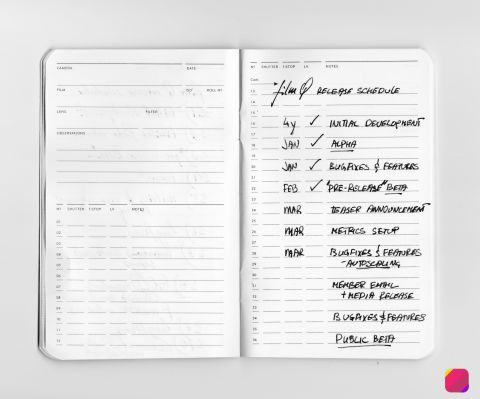 CAMERA DATE
FILM ISO ROLL Nº
LENS FILTER
OBSERVATIONS
Nº SHUTTER F.STOP LV NOTES
01
02
03
04
05
06
07
08
09
10
11
12
Nº SHUTTER F.STOP LV NOTES
Cont.
13 RELEASE SCHEDULE
14
15
16 4y ✓ INITIAL DEVELOPMENT
17
18 JAN ✓ ALPHA
19
20 JAN ✓ BUGFIXES & FEATURES
21
22 FEB ✓ "PRE-RELEASE" BETA
23
24 MAR TEASER ANNOUNCEMENT
25
26 MAR METRICS SETUP
27
28 MAR BUGFIXES & FEATURES
29 - AUTOSCALING
30
31 MEMBER EMAIL
32 + MEDIA RELEASE
33
34 BUGFIXES & FEATURES
35
36 PUBLIC BETA